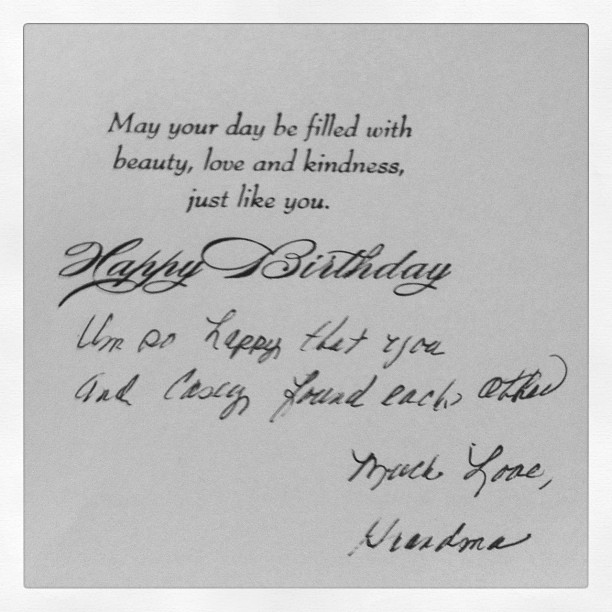 May your day be filled with
beauty, love and kindness,
just like you.
Happy Birthday
I'm so happy that you
and Casey found each other
Much Love,
Grandma